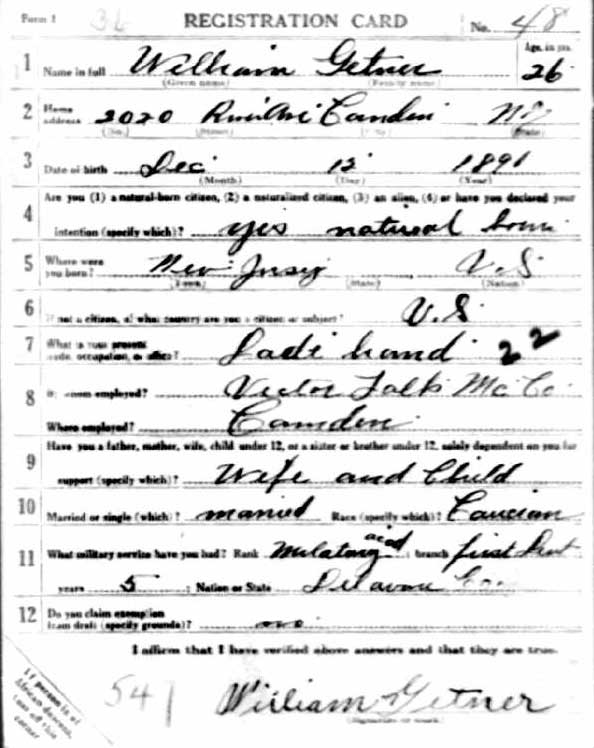 Form 1 36 REGISTRATION CARD No. 48
1 Name in full William Getner Age, in yrs. 26
(Given name) (Family name)
2 Home address 2020 Camden N J
(No.) (Street) (City) (State)
3 Date of birth Dec 12 1891
(Month) (Day) (Year)
Are you (1) a natural-born citizen, (2) a naturalized citizen, (3) an alien, (4) or have you declared your
4 intention (specify which)? yes natural born
5 Where were you born? New Jersey U.S
(Town) (State) (Nation)
6 If not a citizen, of what country are you a citizen or subject? U.S
7 What is your present trade, occupation, or office? hand 22
8 By whom employed? Victor Talk Mc Co
Where employed? Camden
Have you a father, mother, wife, child under 12, or a sister or brother under 12, solely dependent on you for
9 support (specify which)? Wife and Child
10 Married or single (which)? married Race (specify which)? Caucian
11 What military service have you had? Rank Milatary acad ; branch first Lieut
years 5 ; Nation or State
12 Do you claim exemption from draft (specify grounds)? no
I affirm that I have verified above answers and that they are true.
541 William Getner
(Signature or mark)
If person is of
African descent,
tear off this
corner